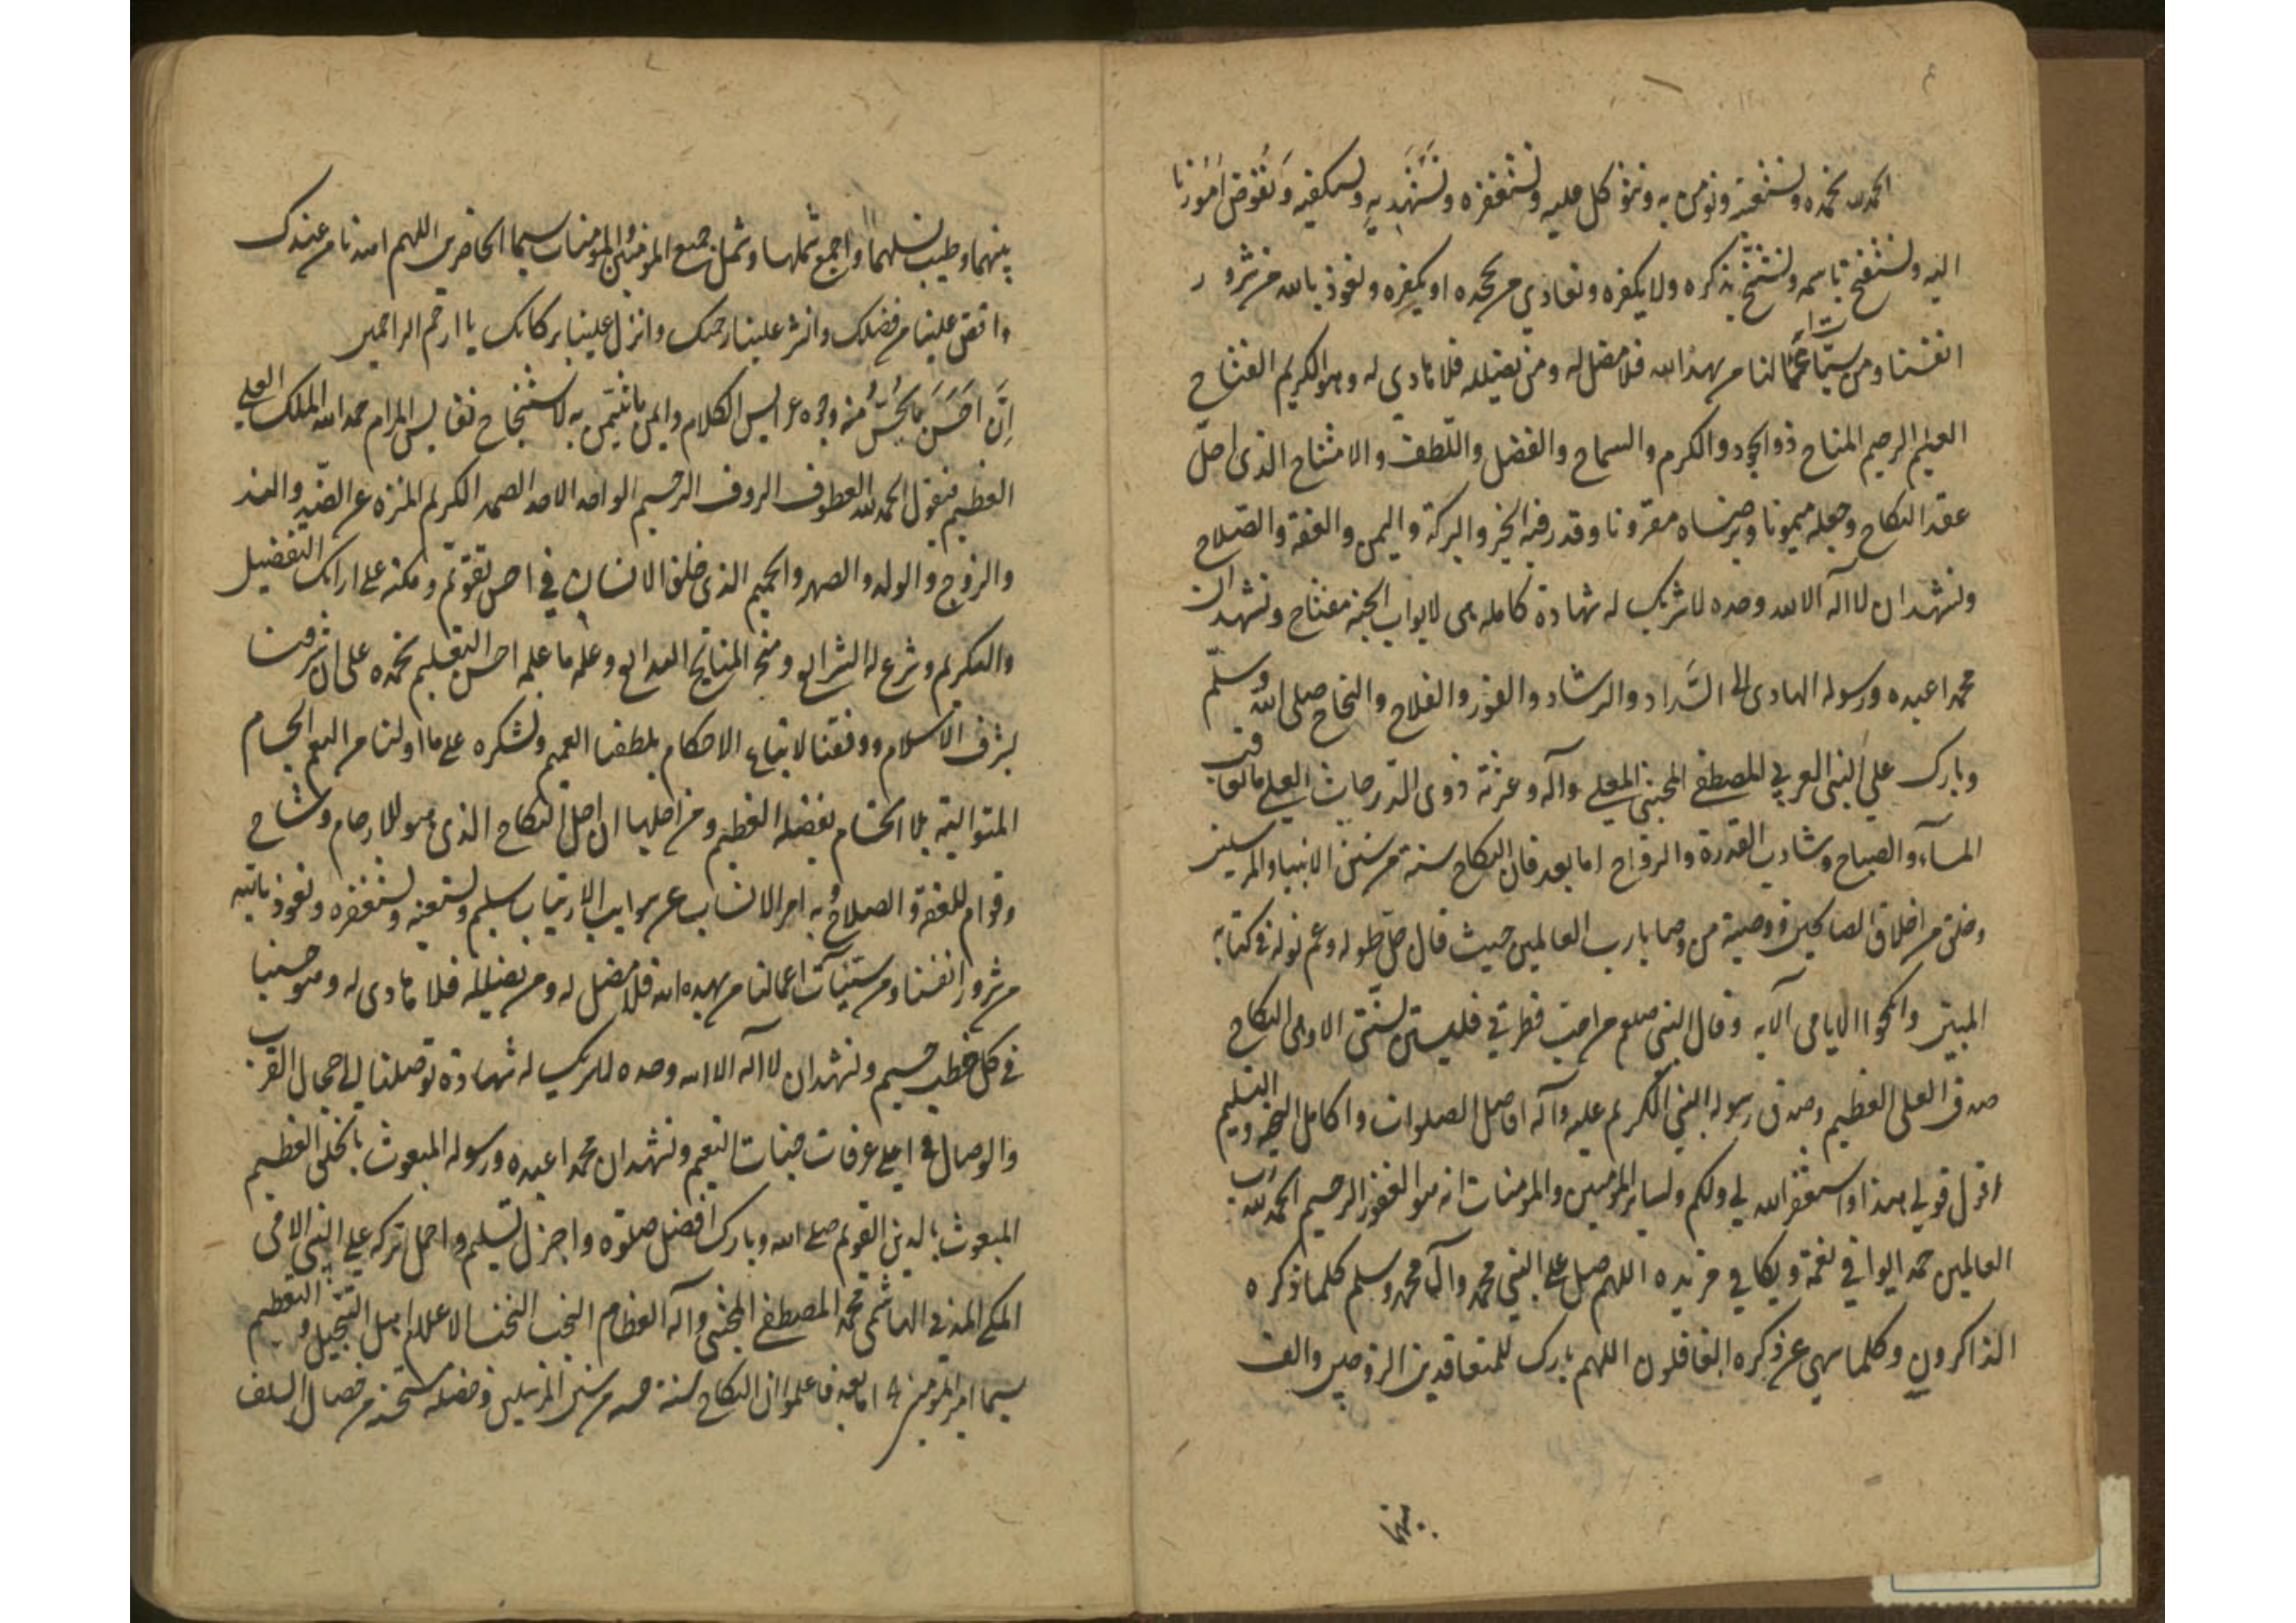 الحمد لله نحمده ونستعينه ونؤمن به ونتوكل عليه ونستغفره ونستهديه ونستكفيه ونفوض امورنا
اليه ونستفتح باسمه ونستنجح بذكره ولا نكفره ونعادي من يجحده او يكفره ونعوذ بالله من شرور
انفسنا ومن سيئات اعمالنا من يهد الله فلا مضل له ومن يضلله فلا هادي له وهو الكريم الفتاح
العليم الرحيم المناح ذو الجود والكرم والسماح والفضل واللطف والامتناح الذي احل
عقد النكاح وجعله ميمونا وبرضاه مقرونا وقدر فيه الخير والبركة واليمن والعفة والصلاح
ونشهد ان لا اله الا الله وحده لا شريك له شهادة كامله هي لابواب الجنة مفتاح ونشهد ان
محمدا عبده ورسوله الهادي الى السداد والرشاد والفوز والفلاح والنجاح صلى الله وسلم
وبارك على النبي العربي المصطفى المجتبى المعلى وآله وعترته ذوي الدرجات العلى ما تعاقب
المساء والصباح و الرواح اما بعد فان النكاح سنة من سنن الانبياء والمرسلين
وخلق من اخلاق الصالحين ووصية من وصايا رب العالمين حيث قال جل طوله وعم نوله في كتابه
المبين وانكحوا الايامى الآيه وقال النبي صلعم من احب فطرتي فليستن بسنتي الا وهي النكاح
صدق العلي العظيم وصدق رسوله النبي الكريم عليه وآله افضل الصلوات واكامل التحية والتسليم
اقول قولي هذا واستغفر الله لي ولكم ولساير المؤمنين والمومنات انه هو الغفور الرحيم الحمد لله رب
العالمين حمدا يوافي نعمه ويكافي مزيده اللهم صل على النبي محمد وآل محمد وسلم كلما ذكره
الذاكرون وكلما سهى عن ذكره الغافلون اللهم بارك للمتعاقدين الزوجين والف
بينهما
بينهما وطيب نسلهما واجمع شملهما وشمل جميع المؤمنين والمومنات سيما الحاضرين اللهم اهدنا من عندك
وافض علينا من فضلك وانشر علينا رحمتك وانزل علينا بركاتك يا ارحم الراحمين
ان احسن ما منه وجوه عرايس الكلام وايمن ما يتيمن به لاستنجاح نفايس المرام حمد الله الملك العلي
العظيم فنقول الحمد لله العطوف الرؤف الرحيم الواحد الاحد الصمد الكريم المنزه عن الضد والند
والزوج والولد والصهر والحميم الذي خلق الانسان في احسن تقويم ومكنه على ارائك التفضيل
والتكريم وشرع له الشرايع و وعلمه ما علمه احسن التعليم نحمده على ان شرفنا
بشرف الاسلام ووفقنا لاتباع الاحكام بلطفه العميم ونشكره على ما اولنا من النعم الجسام
المتوالية بلا اختتام بفضله العظيم ومن اجلها ان احل النكاح الذي هو للارحام وشاح
وقوام للعفة والصلاح وبه امر الانساب عن الارتياب سليم ونستعينه ونستغفره ونعوذ بالله
من شرور انفسنا ومن سيئات اعمالنا من يهده الله فلا مضل له ومن يضلله فلا هادي له وهو حسبنا
في كل خطب جسيم ونشهد ان لا اله الا الله وحده لا شريك له شهادة توصلنا الى حجال القرب
والوصال في اعلى غرفات جنات النعيم ونشهد ان محمدا عبده ورسوله المبعوث بالخلق العظيم
المبعوث بالدين القويم صلى الله وبارك افضل صلوة واجزل تسليم واجمل تركه على النبي الامي
المكي المدني الهاشمي محمد المصطفى المجتبى وآله العظام النجب النخب الاعلام اهل التبجيل والتعظيم
سيما امير المومنين اما بعد فاعلموا ان النكاح سنة حسنه من سنن المرسلين وخصلة مستحسنة من خصال السلف